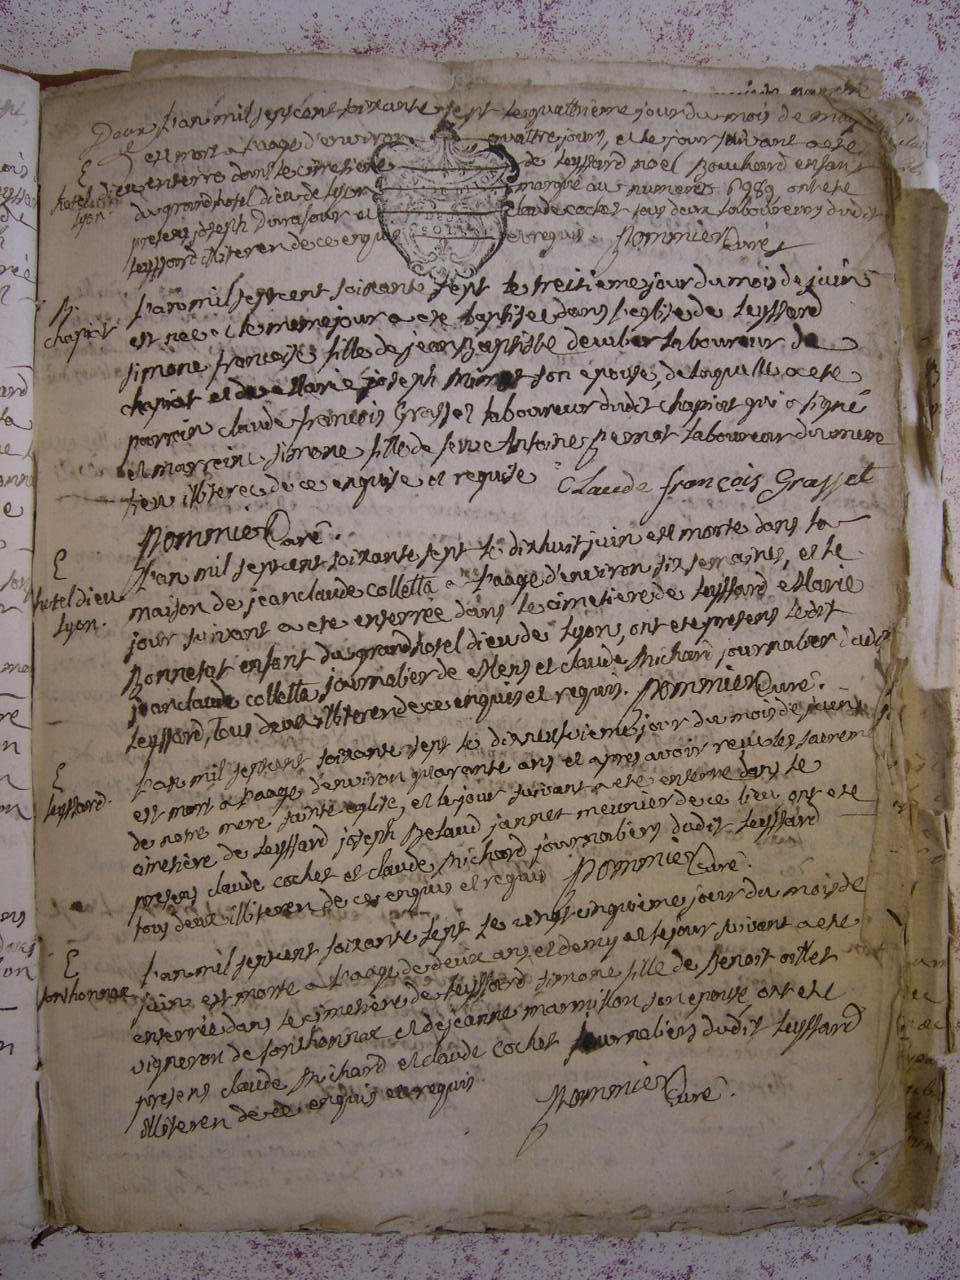 Deux L'an mil sept cent soixante sept le quatrieme jour du mois de mai
E est mort a l'aage d'environ quattre jours, et le jour suivant a eté
hotel dieu Lyon enterré dans le cimetiere de Leyssard noel Bouchard enfant
du grand hotel dieu de Lyon marqué au numero 6989 ont eté
presens joseph Durrafour et claude cochet tous deux laboureurs dudit
Leyssard illiteren de ce enquis et requis Pommier Curé
B. L'an mil sept cent soixante sept le treizieme jour du mois de juin
chapiat est née et le meme jour a eté baptisée dans l'eglise de Leyssard
simone francoise fille de jean Baptiste laboureur de
chapiat et de Marie joseph son epouse, de laquelle a eté
parrain claude francois Grasset laboureur dudit chapiat qui a signé
et marreine simone fille de feu Antoine Pernot laboureur du meme
lieu illiteree de ce enquise et requise Claude françois Grasset
Pommier Curé.
E L'an mil sept cent soixante sept le dixhuit juin est morte dans la
hotel dieu maison de jean claude colletta a l'aage d'environ six semaines, et le
Lyon. jour suivant a eté enterrée dans le cimetiere de Leyssard Marie
Bonnefat enfant du grand hotel dieu de Lyon, ont eté presens ledit
jean claude colletta journalier de et claude Michard journalier dudit
Leyssard, tous deux illiteren de ce enquis et requis. Pommier Curé.
E L'an mil sept cent soixante sept le dixneuvieme jour du mois de juin
Leyssard. est mort a l'aage d'environ quarante ans et apres avoir reçu les sacrem
de notre mere sainte eglise, et le jour suivant a eté enterré dans le
cimetière de Leyssard joseph Betaud jannet meunier de ce lieu ont eté
presens claude cochet et claude Michard journaliers dudit Leyssard
tous deux illiteren de ce enquis et requis Pommier Curé.
E L'an mil sept cent soixante sept le vingt cinquieme jour du mois de
sonthonnax juin est morte a l'aage de deux ans et demy et le jour suivant a eté
enterrée dans le cimetière de Leyssard simone fille de Benoit oillet
vigneron de sonthonnax et de jeanne marmillon son epouse ont eté
presens claude Michard et claude cochet journaliers dudit Leyssard
illiteren de ce enquis et requis Pommier Curé.